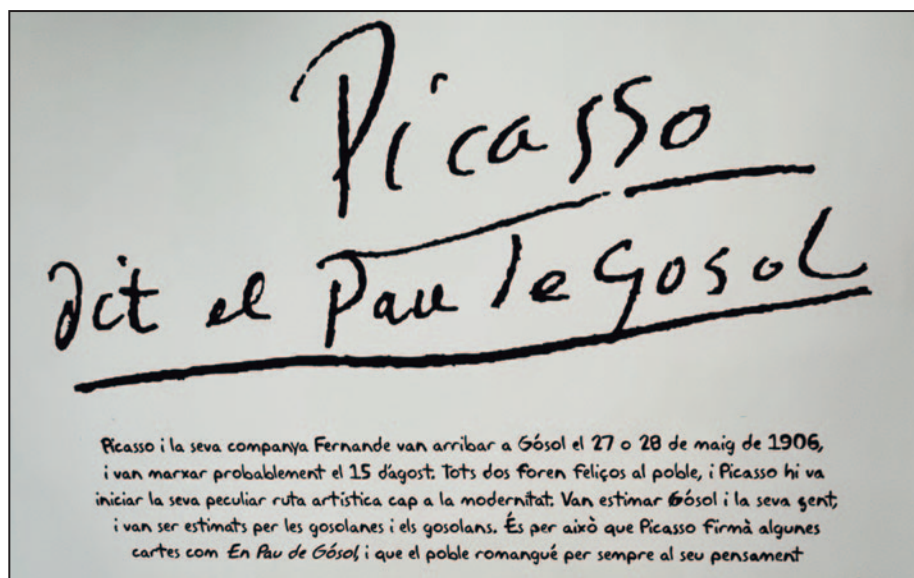 Picasso
dit el Pau de Gosol
Picasso i la seva companya Fernande van arribar a Gósol el 27 o 28 de maig de 1906,
i van marxar probablement el 15 d'agost. Tots dos foren feliços al poble, i Picasso hi va
iniciar la seva peculiar ruta artística cap a la modernitat. Van estimar Gósol i la seva gent,
i van ser estimats per les gosolanes i els gosolans. És per això que Picasso firmà algunes
cartes com En Pau de Gósol, i que el poble romangué per sempre al seu pensament